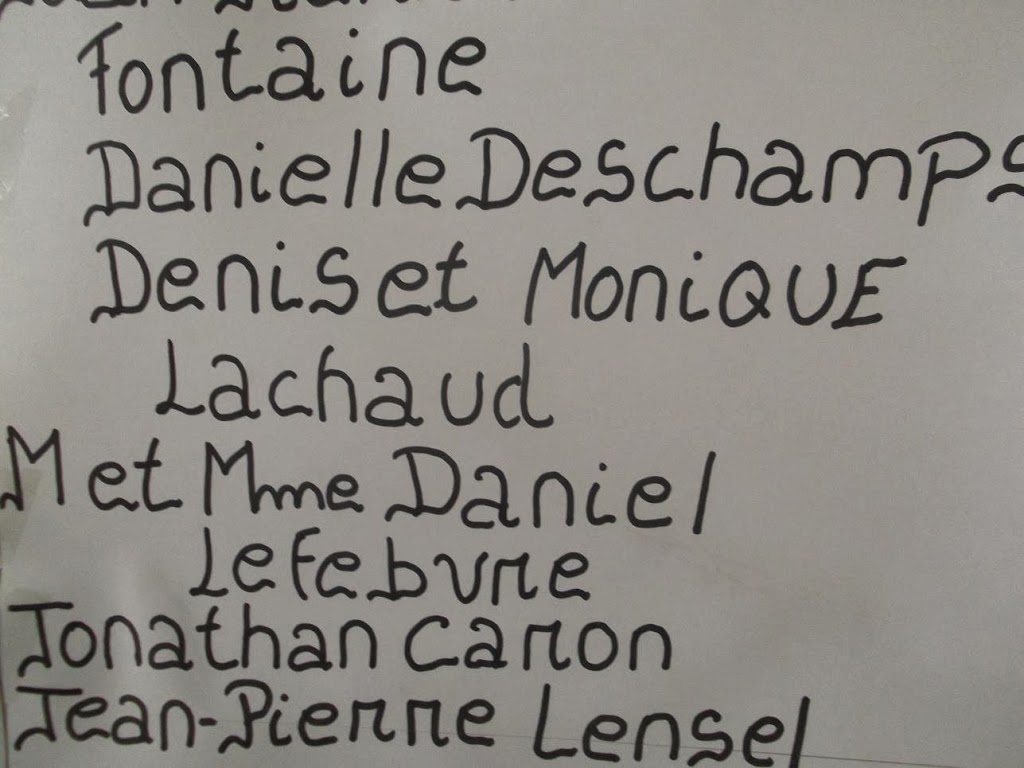 Fontaine
Danielle Deschamps
Denis et MoniQUE
Lachaud
M et Mme Daniel
Lefebvre
Jonathan Caron
Jean-Pierre Lensel